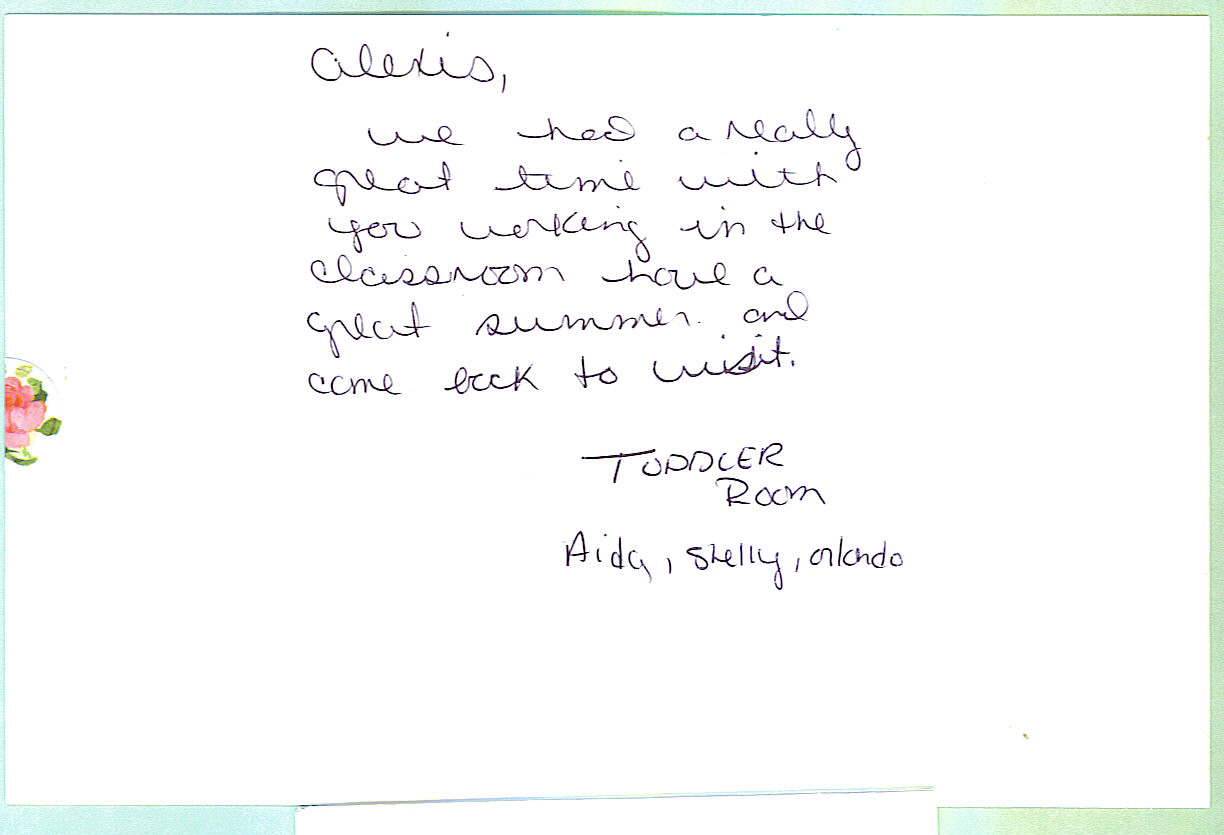 Alexis,
we had a really
great time with
you working in the
classroom have a
great summer. and
come back to visit.
TODDLER
ROOM
Aida, Shelly, Orlando